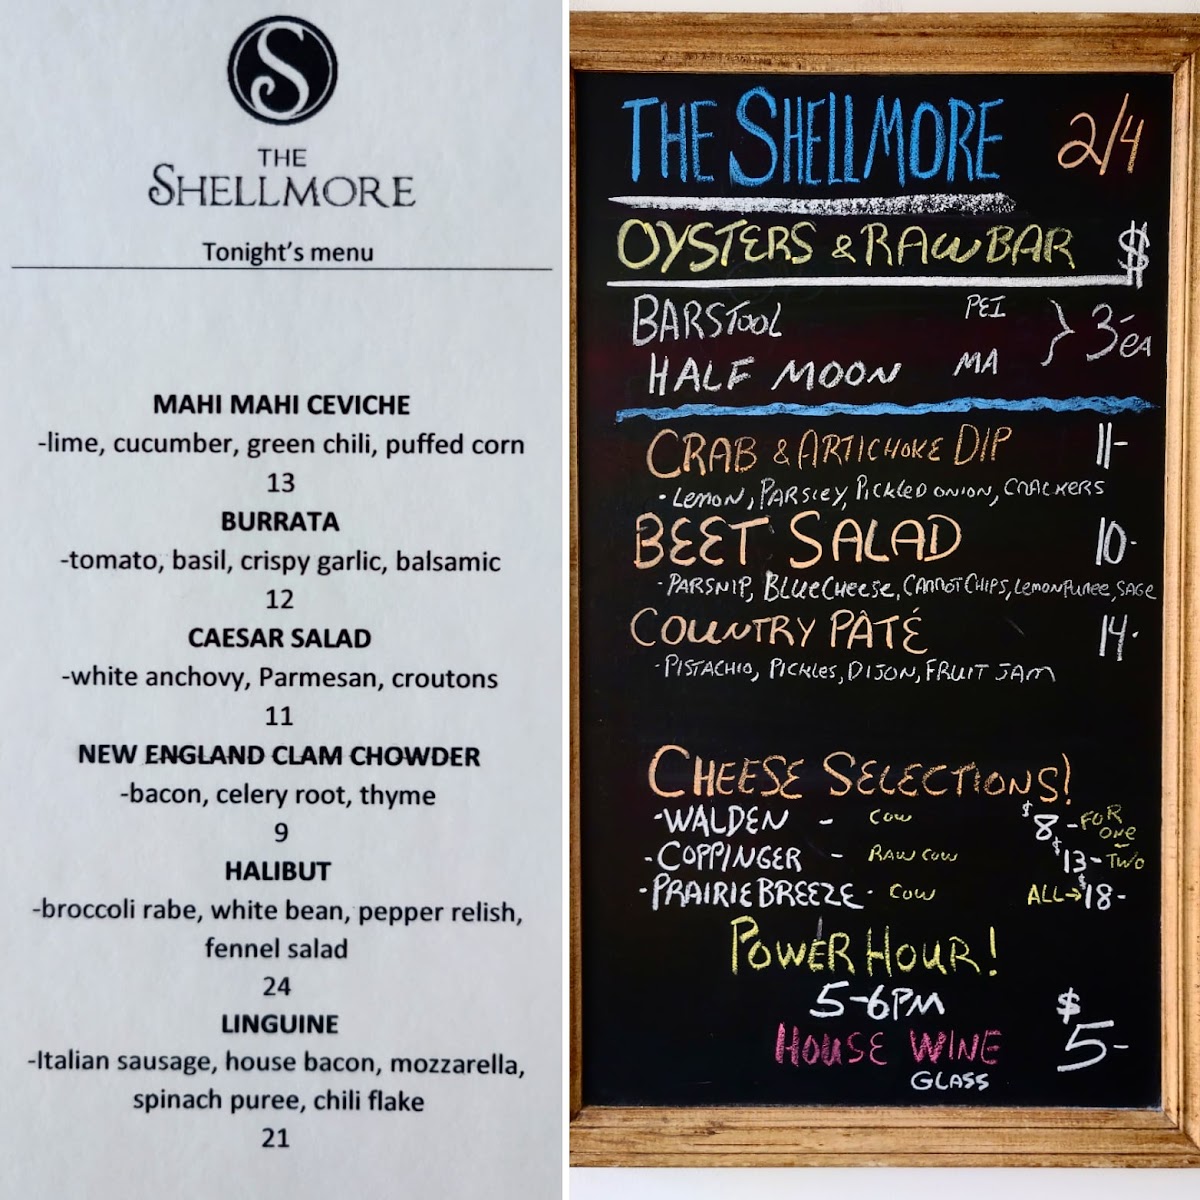 S
THE
SHELLMORE
Tonight's menu
MAHI MAHI CEVICHE
-lime, cucumber, green chili, puffed corn
13
BURRATA
-tomato, basil, crispy garlic, balsamic
12
CAESAR SALAD
-white anchovy, Parmesan, croutons
11
NEW ENGLAND CLAM CHOWDER
-bacon, celery root, thyme
9
HALIBUT
-broccoli rabe, white bean, pepper relish,
fennel salad
24
LINGUINE
-Italian sausage, house bacon, mozzarella,
spinach puree, chili flake
21
THE SHELLMORE 2/4
OYSTERS & RAW BAR $
BARSTOOL PEI } 3- ea
HALF MOON MA
CRAB & ARTICHOKE DIP 11-
- LEMON, PARSLEY, PICKLED ONION, CRACKERS
BEET SALAD 10-
- PARSNIP, BLUE CHEESE, CARROT CHIPS, LEMON PUREE, SAGE
COUNTRY PÂTÉ 14-
- PISTACHIO, PICKLES, DIJON, FRUIT JAM
CHEESE SELECTIONS!
-WALDEN - COW $8 - FOR ONE
-COPPINGER - RAW COW $13 - TWO
-PRAIRIE BREEZE - COW ALL→ $18-
POWER HOUR!
5-6PM
HOUSE WINE $5-
GLASS